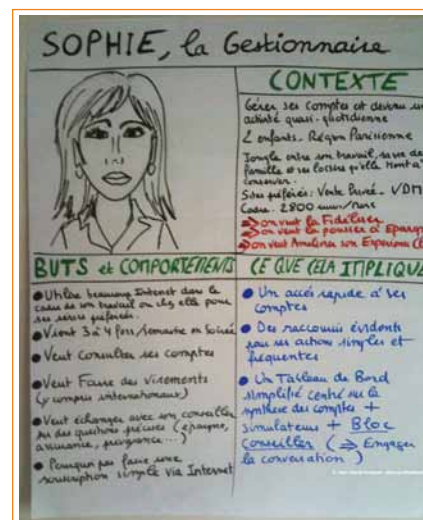 SOPHIE, la Gestionnaire
CONTEXTE
Gérer ses comptes est devenu une
activité quasi-quotidienne
2 enfants - Région Parisienne
Jongle entre son travail, sa vie de
famille et ses loisirs qu'elle tient à
conserver.
Sites préférés: Vente Privée - VDM
Cadre - 2800 euros/mois
=> on veut la Fidéliser
=> on veut la pousser à Epargner
=> on veut Améliorer son Expérience
BUTS et COMPORTEMENTS
● Utilise beaucoup Internet dans le
cadre de son travail ou chez elle pour
ses sites préférés.
● Vient 3 à 4 fois/semaine en Soirée
● Veut Consulter ses comptes
● Veut Faire des virements
(y compris internationaux)
● Veut échanger avec son conseiller
sur des questions précises (épargne,
assurance, prévoyance...)
● Pourquoi pas faire une
souscription simple via Internet
CE QUE CELA IMPLIQUE
● Un accès rapide à ses
comptes
● Des raccourcis évidents
pour ses actions simples et
fréquentes
● Un Tableau de Bord
simplifié centré sur la
synthèse des comptes +
simulateurs + Bloc
Conseiller (=> Engager
la conversation)